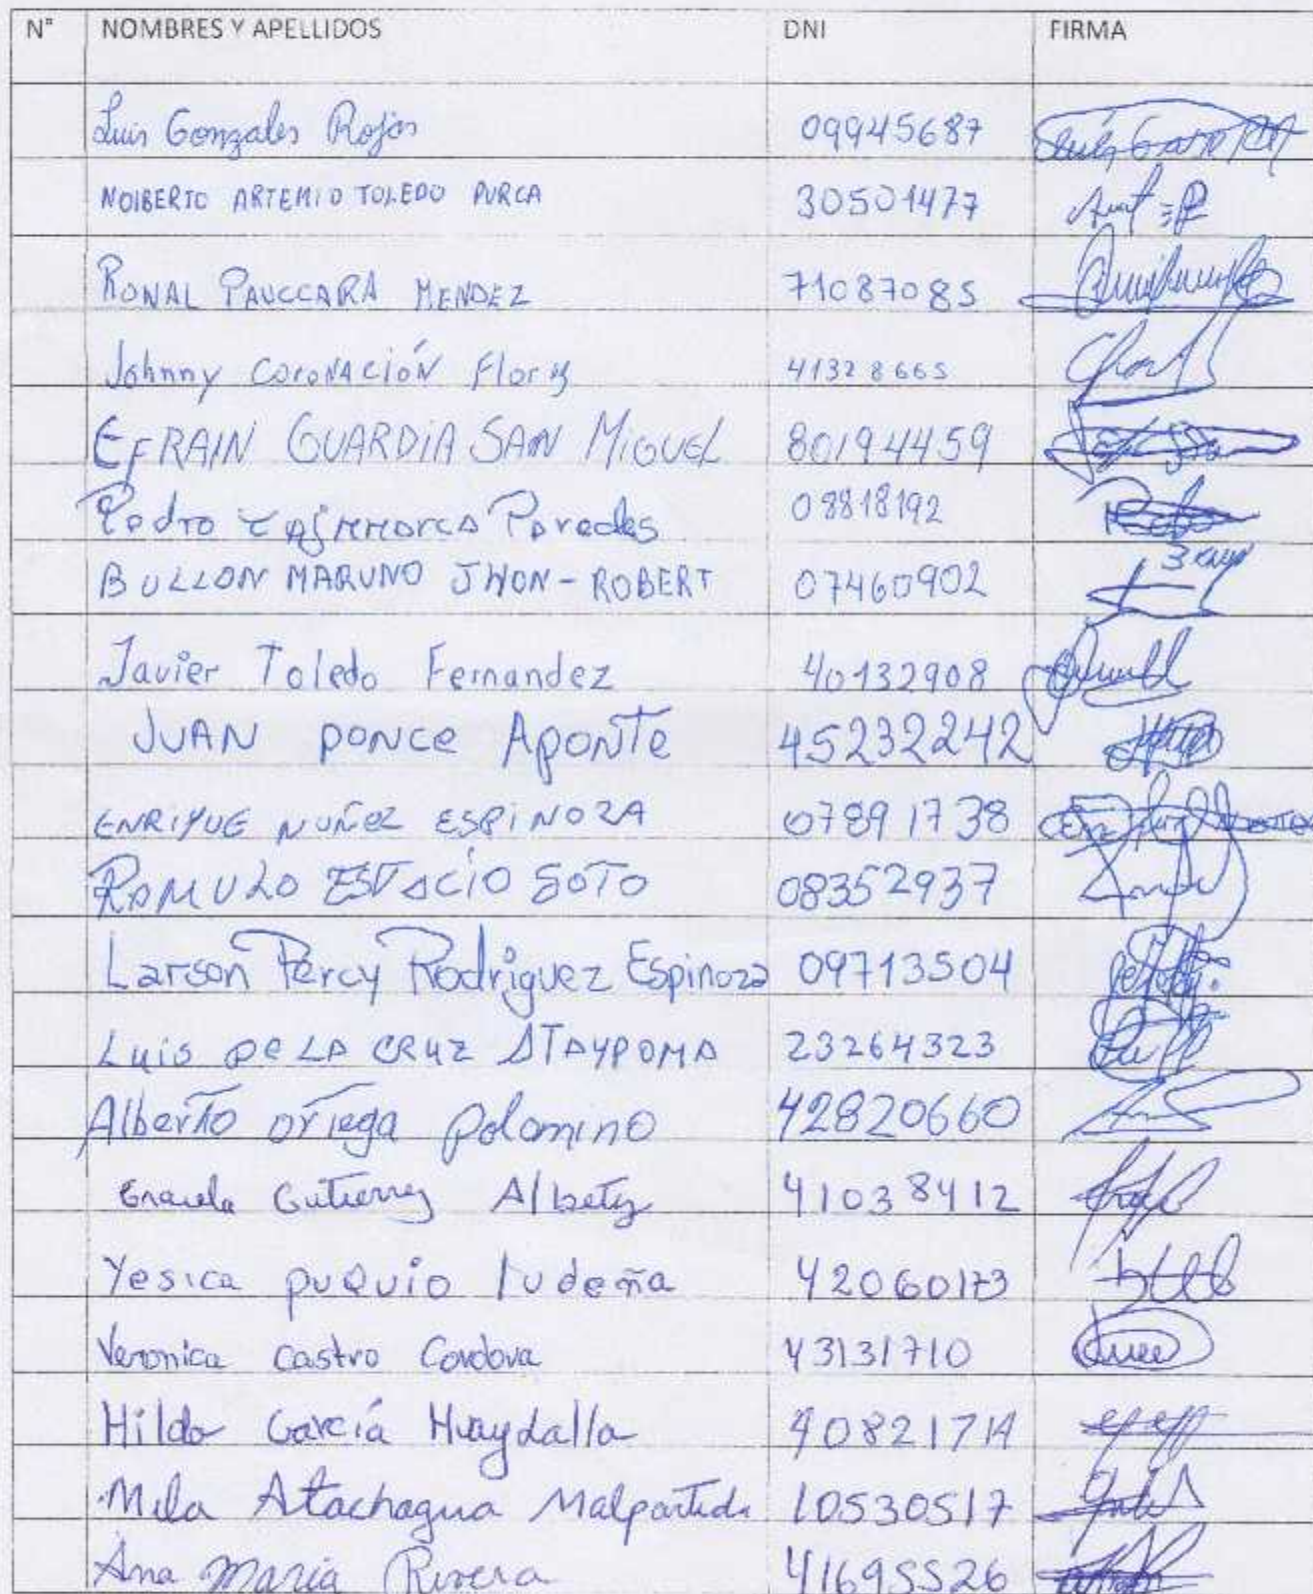 N° NOMBRES Y APELLIDOS DNI FIRMA
Luis Gonzales Rojas 09945687
NOIBERTO ARTEMIO TOLEDO PURCA 30501477
RONAL PAUCCARA MENDEZ 71087085
Johnny CORONACIÓN Flores 41328665
EFRAIN GUARDIA SAN MIGUEL 80194459
Pedro Cajamarca Paredes 08818192
BULLON MARUNO JHON-ROBERT 07460902
Javier Toledo Fernandez 40132908
JUAN PONCE APONTE 45232242
ENRIYUE NUÑEZ ESPINOZA 07891738
ROMULO ESTACIO SOTO 08352937
Larson Percy Rodriguez Espinoza 09713504
Luis DE LA CRUZ ATAYPOMA 23264323
Alberto ortega palomino 42820660
Graciela Gutierrez 41038412
Yesica PUQUIO ludeña 42060173
Veronica castro Cordova 43131710
Hilda García 40821714
Mila Atachagua Malpartida 10530517
Ana Maria Rivera 41695526